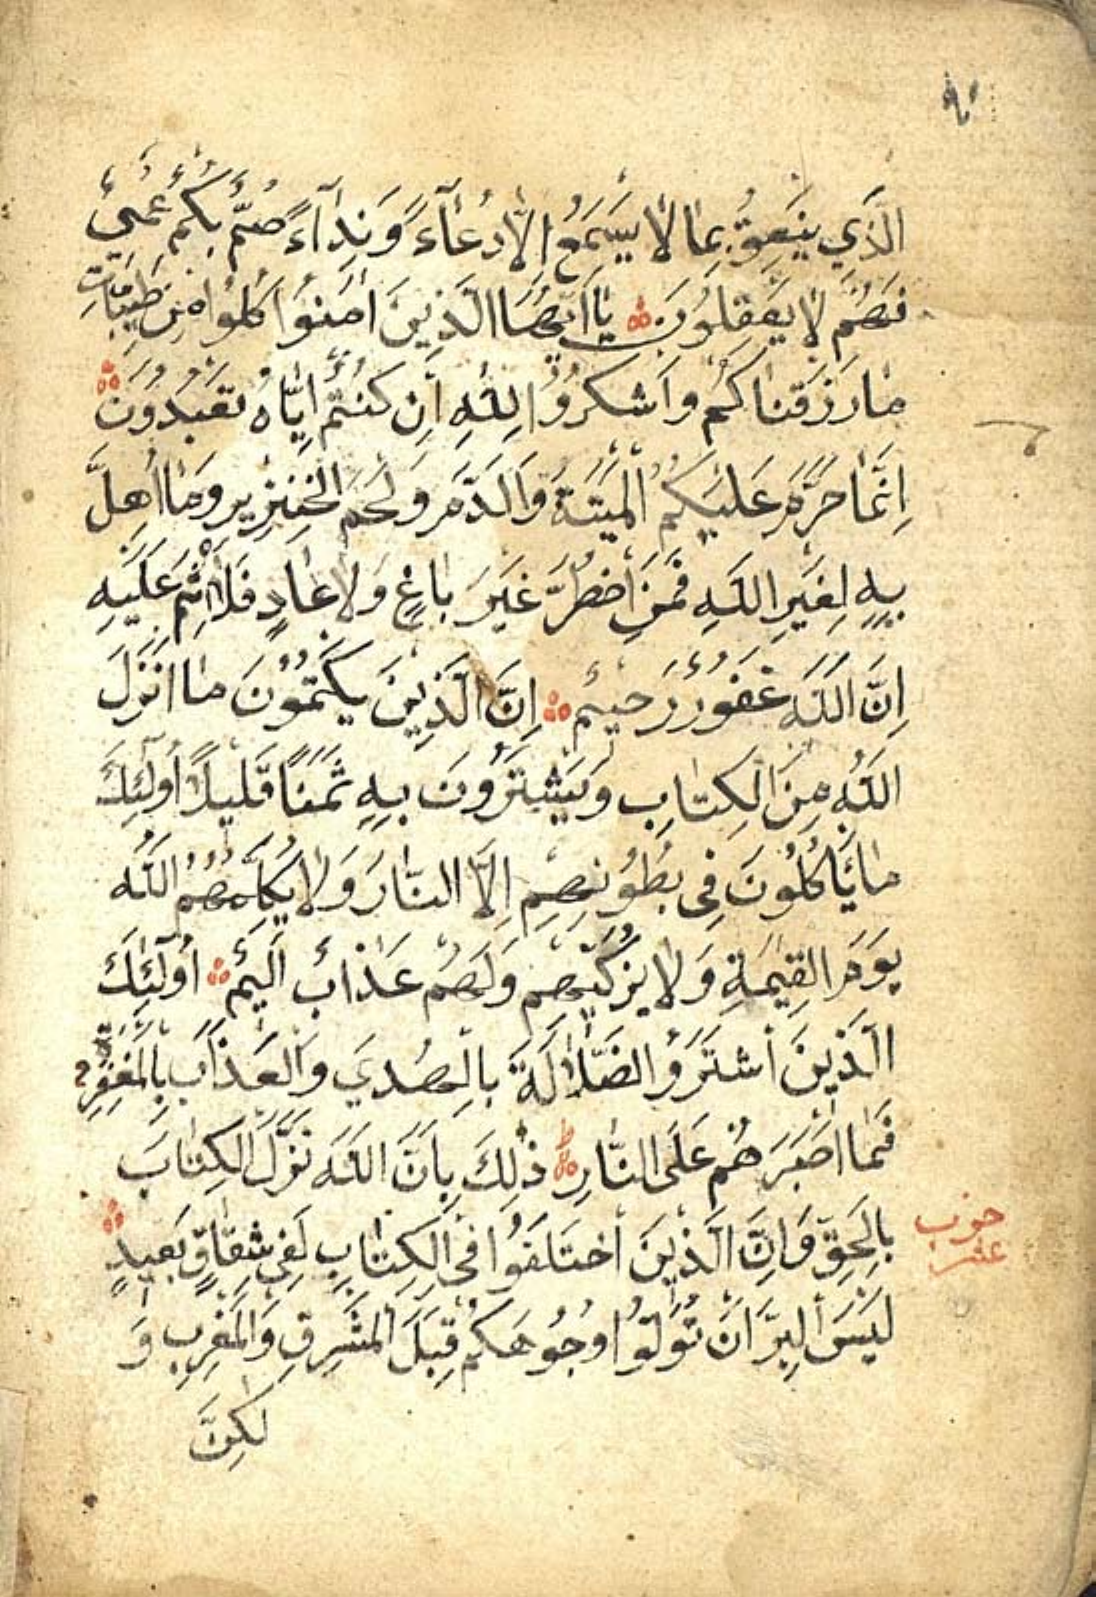 الَّذِي يَنْعِقُ بِمَا لَا يَسْمَعُ اِلَّا دُعَآءً وَنِدَآءً صُمٌّ بُكْمٌ عُمْيٌ
فَهُمْ لَا يَعْقِلُونَ يَا اَيُّهَا الَّذِينَ اٰمَنُوا كُلُوا مِنْ طَيِّبَاتِ
مَا رَزَقْنَاكُمْ وَاشْكُرُوا لِلّٰهِ اِنْ كُنْتُمْ اِيَّاهُ تَعْبُدُونَ
اِنَّمَا حَرَّمَ عَلَيْكُمُ الْمَيْتَةَ وَالدَّمَ وَلَحْمَ الْخِنْزِيرِ وَمَا اُهِلَّ
بِهِ لِغَيْرِ اللّٰهِ فَمَنِ اضْطُرَّ غَيْرَ بَاغٍ وَلَا عَادٍ فَلَا اِثْمَ عَلَيْهِ
اِنَّ اللّٰهَ غَفُورٌ رَحِيْمٌ اِنَّ الَّذِينَ يَكْتُمُونَ مَا اَنْزَلَ
اللّٰهُ مِنَ الْكِتَابِ وَيَشْتَرُونَ بِهِ ثَمَنًا قَلِيلًا اُولٰٓئِكَ
مَا يَاْكُلُونَ فِي بُطُونِهِمْ اِلَّا النَّارَ وَلَا يُكَلِّمُهُمُ اللّٰهُ
يَوْمَ الْقِيٰمَةِ وَلَا يُزَكِّيْهِمْ وَلَهُمْ عَذَابٌ اَلِيْمٌ اُولٰٓئِكَ
الَّذِينَ اشْتَرَوُا الضَّلَالَةَ بِالْهُدَي وَالْعَذَابَ بِالْمَغْفِرَةِ
فَمَا اَصْبَرَهُمْ عَلَى النَّارِ ذٰلِكَ بِاَنَّ اللّٰهَ نَزَّلَ الْكِتَابَ
بِالْحَقِّ وَاِنَّ الَّذِينَ اخْتَلَفُوا فِي الْكِتَابِ لَفِي شِقَاقٍ بَعِيدٍ
لَيْسَ الْبِرَّ اَنْ تُوَلُّوا وُجُوهَكُمْ قِبَلَ الْمَشْرِقِ وَالْمَغْرِبِ وَ
لٰكِنَّ
حزب
عشر